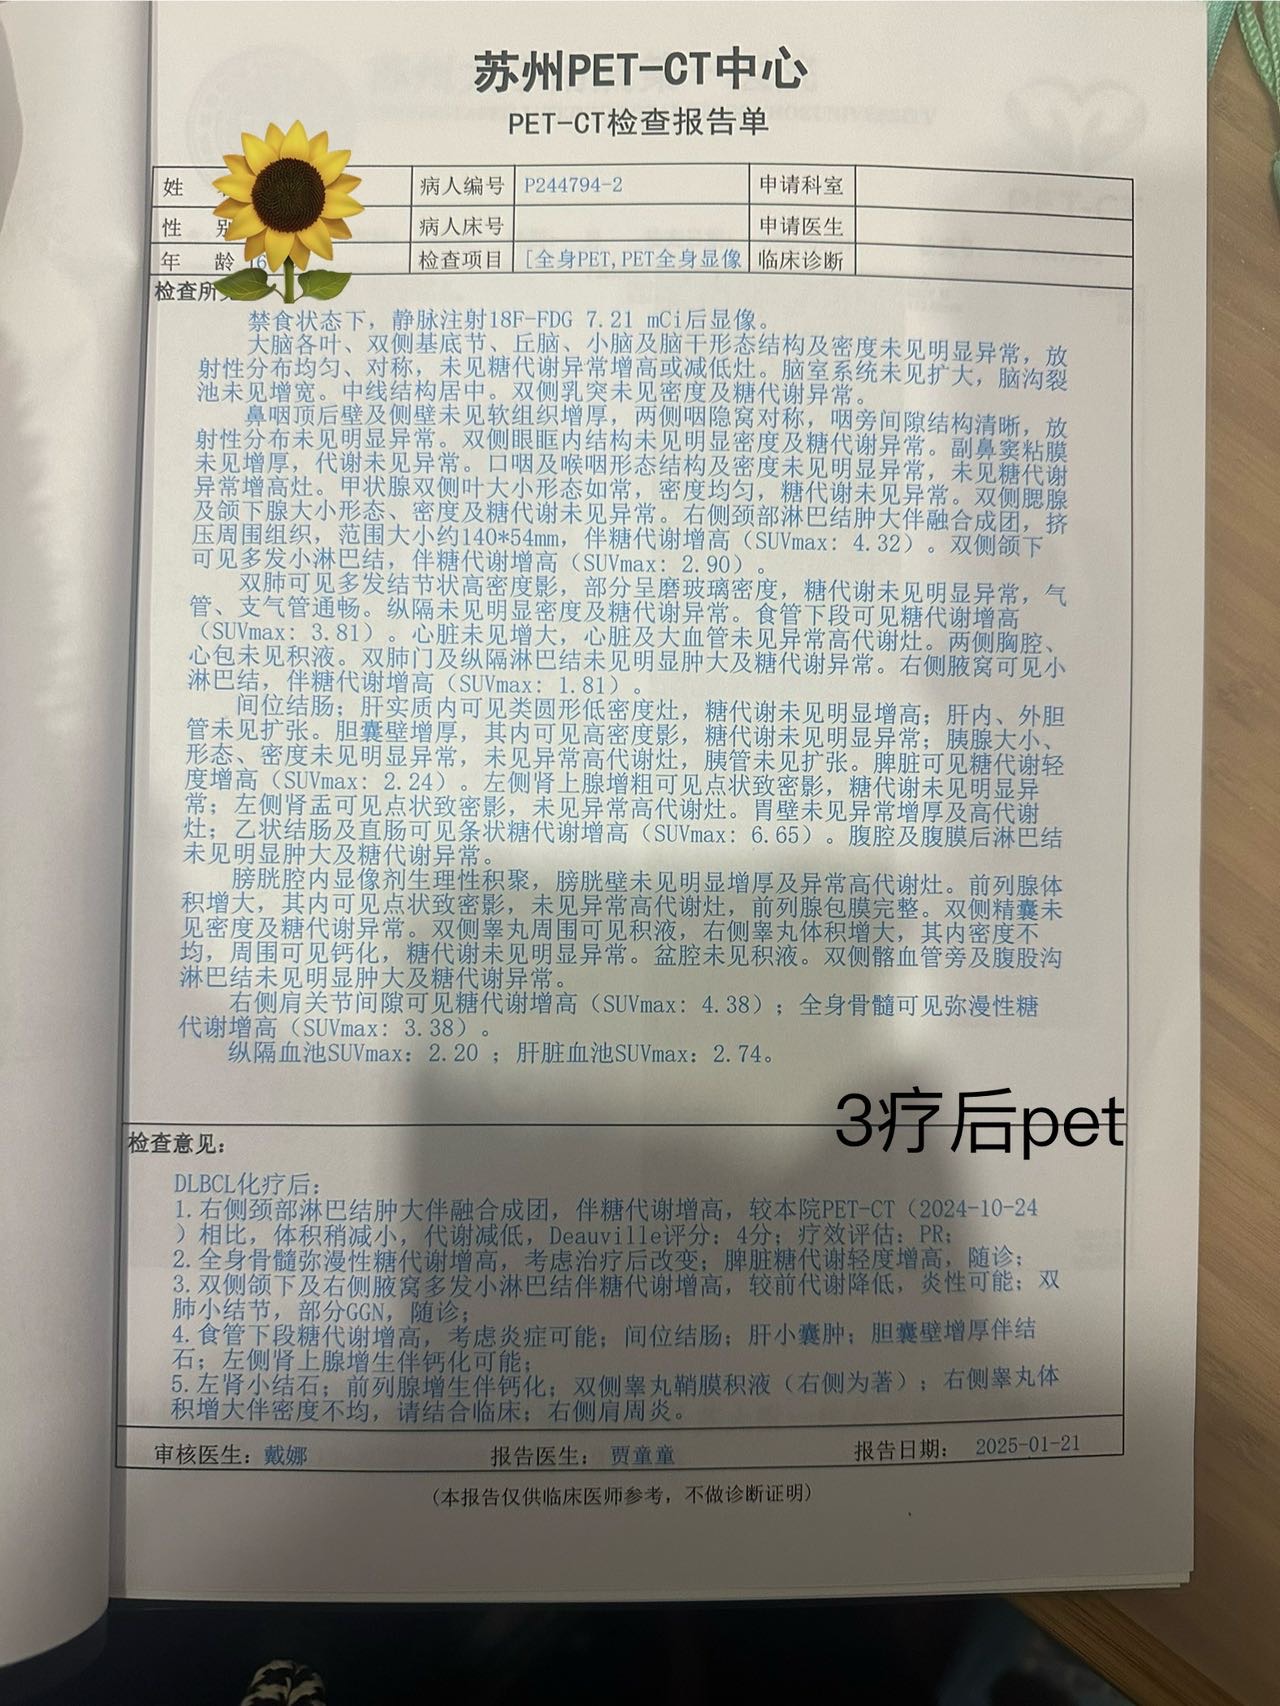 苏州PET-CT中心
PET-CT检查报告单
姓 病人编号 P244794-2 申请科室
性 别 病人床号 申请医生
年 龄 检查项目 [全身PET,PET全身显像 临床诊断
检查所
禁食状态下，静脉注射18F-FDG 7.21 mCi后显像。
大脑各叶、双侧基底节、丘脑、小脑及脑干形态结构及密度未见明显异常，放
射性分布均匀、对称，未见糖代谢异常增高或减低灶。脑室系统未见扩大，脑沟裂
池未见增宽。中线结构居中。双侧乳突未见密度及糖代谢异常。
鼻咽顶后壁及侧壁未见软组织增厚，两侧咽隐窝对称，咽旁间隙结构清晰，放
射性分布未见明显异常。双侧眼眶内结构未见明显密度及糖代谢异常。副鼻窦粘膜
未见增厚，代谢未见异常。口咽及喉咽形态结构及密度未见明显异常，未见糖代谢
异常增高灶。甲状腺双侧叶大小形态如常，密度均匀，糖代谢未见异常。双侧腮腺
及颌下腺大小形态、密度及糖代谢未见异常。右侧颈部淋巴结肿大伴融合成团，挤
压周围组织，范围大小约140*54mm，伴糖代谢增高（SUVmax: 4.32）。双侧颌下
可见多发小淋巴结，伴糖代谢增高（SUVmax: 2.90）。
双肺可见多发结节状高密度影，部分呈磨玻璃密度，糖代谢未见明显异常，气
管、支气管通畅。纵隔未见明显密度及糖代谢异常。食管下段可见糖代谢增高
（SUVmax: 3.81）。心脏未见增大，心脏及大血管未见异常高代谢灶。两侧胸腔、
心包未见积液。双肺门及纵隔淋巴结未见明显肿大及糖代谢异常。右侧腋窝可见小
淋巴结，伴糖代谢增高（SUVmax: 1.81）。
间位结肠；肝实质内可见类圆形低密度灶，糖代谢未见明显增高；肝内、外胆
管未见扩张。胆囊壁增厚，其内可见高密度影，糖代谢未见明显异常；胰腺大小、
形态、密度未见明显异常，未见异常高代谢灶，胰管未见扩张。脾脏可见糖代谢轻
度增高（SUVmax: 2.24）。左侧肾上腺增粗可见点状致密影，糖代谢未见明显异
常；左侧肾盂可见点状致密影，未见异常高代谢灶。胃壁未见异常增厚及高代谢
灶；乙状结肠及直肠可见条状糖代谢增高（SUVmax: 6.65）。腹腔及腹膜后淋巴结
未见明显肿大及糖代谢异常。
膀胱腔内显像剂生理性积聚，膀胱壁未见明显增厚及异常高代谢灶。前列腺体
积增大，其内可见点状致密影，未见异常高代谢灶，前列腺包膜完整。双侧精囊未
见密度及糖代谢异常。双侧睾丸周围可见积液，右侧睾丸体积增大，其内密度不
均，周围可见钙化，糖代谢未见明显异常。盆腔未见积液。双侧髂血管旁及腹股沟
淋巴结未见明显肿大及糖代谢异常。
右侧肩关节间隙可见糖代谢增高（SUVmax: 4.38）；全身骨髓可见弥漫性糖
代谢增高（SUVmax: 3.38）。
纵隔血池SUVmax：2.20 ；肝脏血池SUVmax：2.74。
3疗后pet
检查意见：
DLBCL化疗后：
1.右侧颈部淋巴结肿大伴融合成团，伴糖代谢增高，较本院PET-CT（2024-10-24
）相比，体积稍减小，代谢减低，Deauville评分：4分；疗效评估：PR；
2.全身骨髓弥漫性糖代谢增高，考虑治疗后改变；脾脏糖代谢轻度增高，随诊；
3.双侧颌下及右侧腋窝多发小淋巴结伴糖代谢增高，较前代谢降低，炎性可能；双
肺小结节，部分GGN，随诊；
4.食管下段糖代谢增高，考虑炎症可能；间位结肠；肝小囊肿；胆囊壁增厚伴结
石；左侧肾上腺增生伴钙化可能；
5.左肾小结石；前列腺增生伴钙化；双侧睾丸鞘膜积液（右侧为著）；右侧睾丸体
积增大伴密度不均，请结合临床；右侧肩周炎。
审核医生：戴娜 报告医生：贾童童 报告日期： 2025-01-21
（本报告仅供临床医师参考，不做诊断证明）